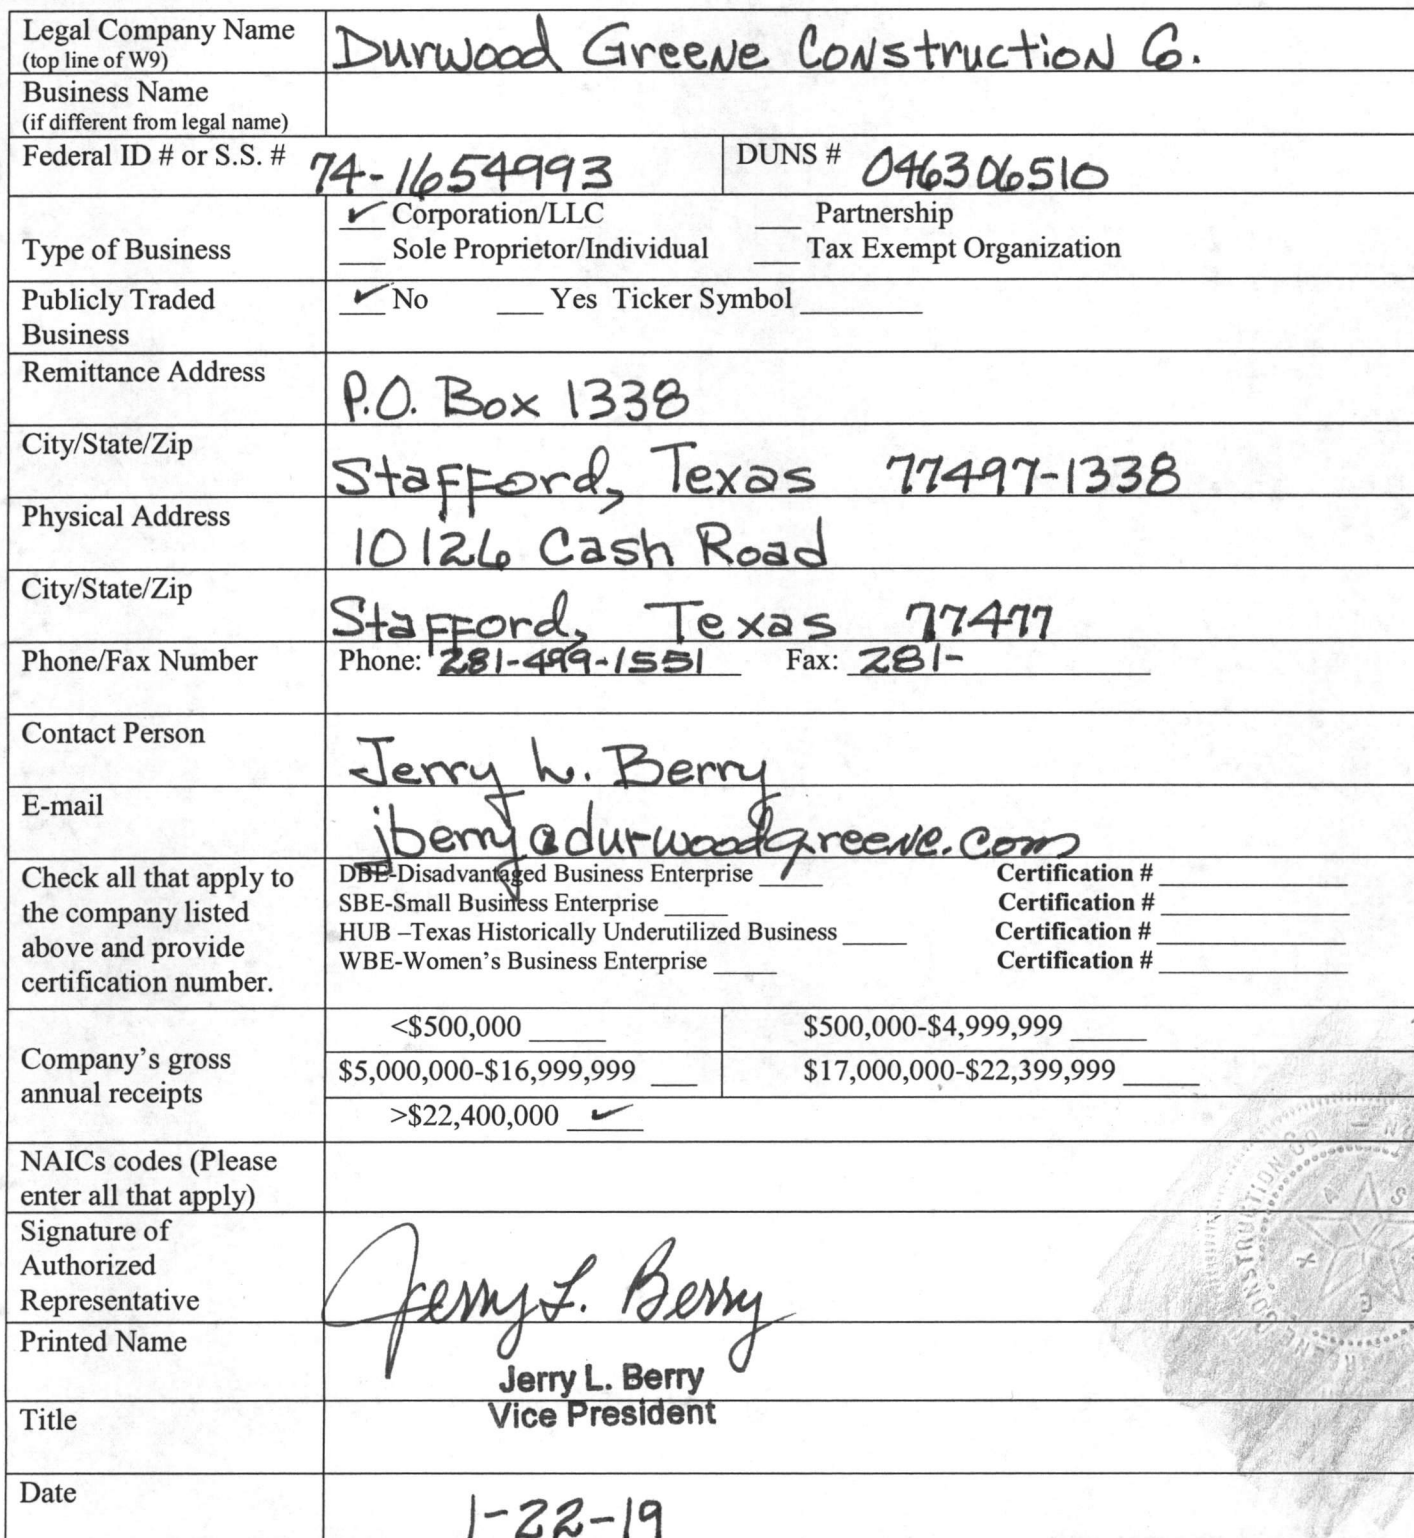 Legal Company Name
(top line of W9)
Durwood Greene Construction Co.
Business Name
(if different from legal name)
Federal ID # or S.S. # 74-1654993 DUNS # 046306510
Type of Business
✓ Corporation/LLC ___ Partnership
___ Sole Proprietor/Individual ___ Tax Exempt Organization
Publicly Traded
Business
✓ No ___ Yes Ticker Symbol ________
Remittance Address P.O. Box 1338
City/State/Zip Stafford, Texas 77497-1338
Physical Address 10126 Cash Road
City/State/Zip Stafford, Texas 77477
Phone/Fax Number Phone: 281-499-1551 Fax: 281-
Contact Person Jerry L. Berry
E-mail jberry@durwoodgreene.com
Check all that apply to
the company listed
above and provide
certification number.
DBE-Disadvantaged Business Enterprise ____ Certification # ____________
SBE-Small Business Enterprise ____ Certification # ____________
HUB –Texas Historically Underutilized Business ____ Certification # ____________
WBE-Women's Business Enterprise ____ Certification # ____________
Company's gross
annual receipts
<$500,000 _____ $500,000-$4,999,999 _____
$5,000,000-$16,999,999 ___ $17,000,000-$22,399,999 _____
>$22,400,000 ✓
NAICs codes (Please
enter all that apply)
Signature of
Authorized
Representative
Jerry L. Berry
Printed Name
Jerry L. Berry
Vice President
Title
Date 1-22-19
CONSTRUCTION CO.